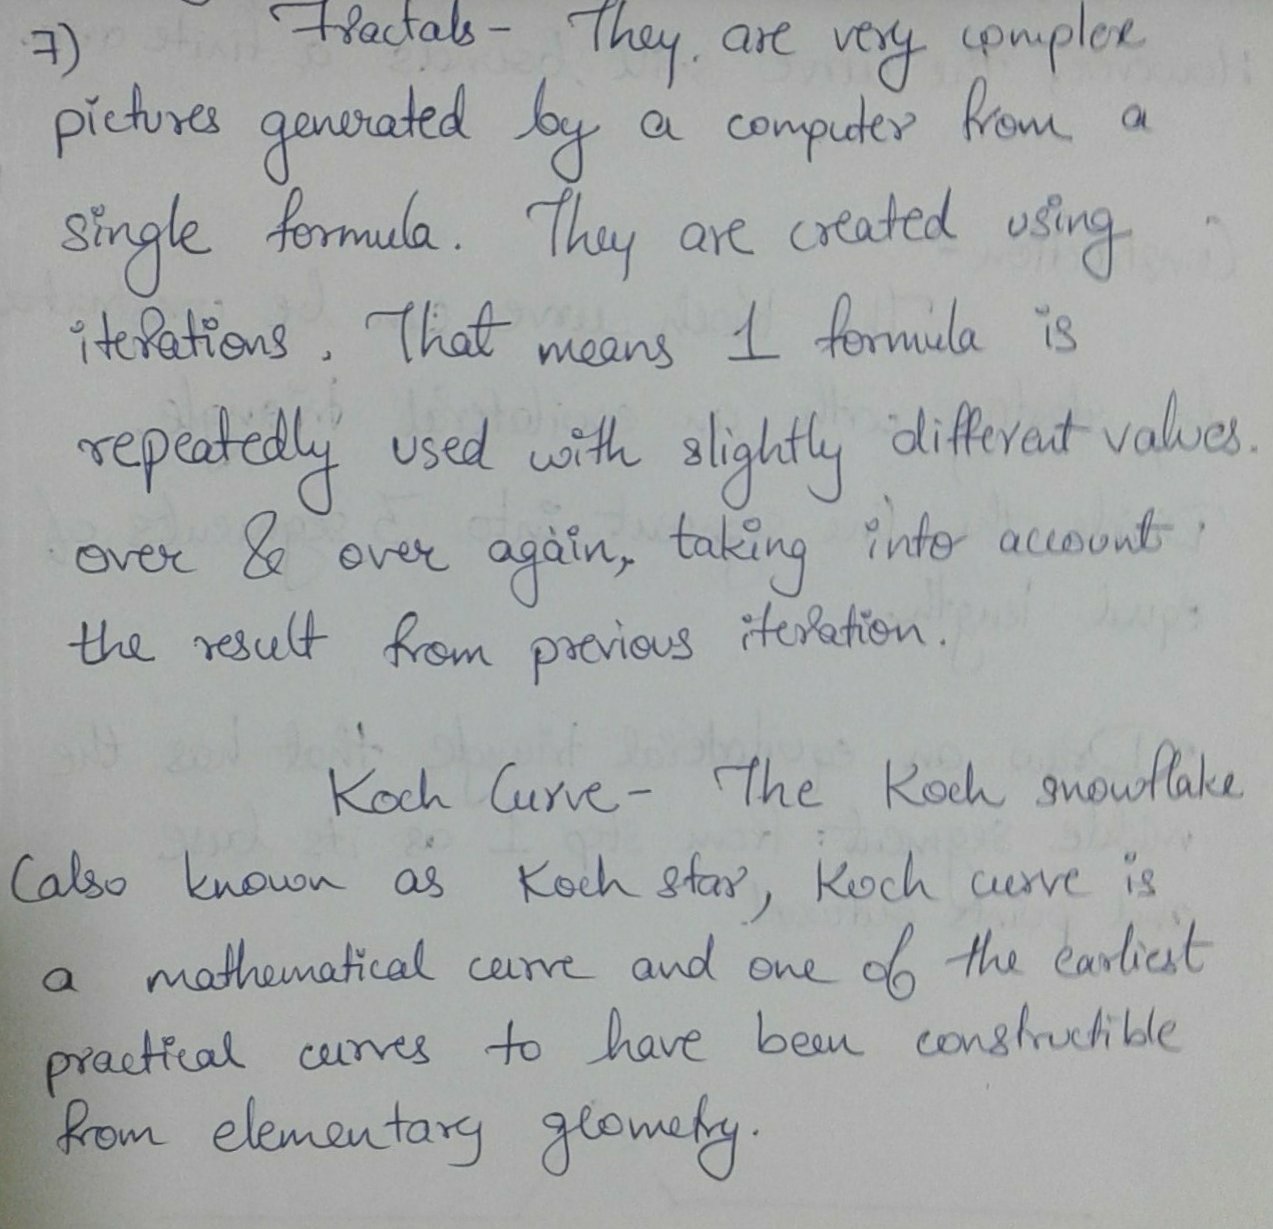 7) Fractals - They are very complex
pictures generated by a computer from a
single formula. They are created using
iterations. That means 1 formula is
repeatedly used with slightly different values.
over & over again, taking into account
the result from previous iteration.
Koch Curve - The Koch snowflake
(also known as Koch star, Koch curve is
a mathematical curve and one of the earliest
practical curves to have been constructible
from elementary geometry.